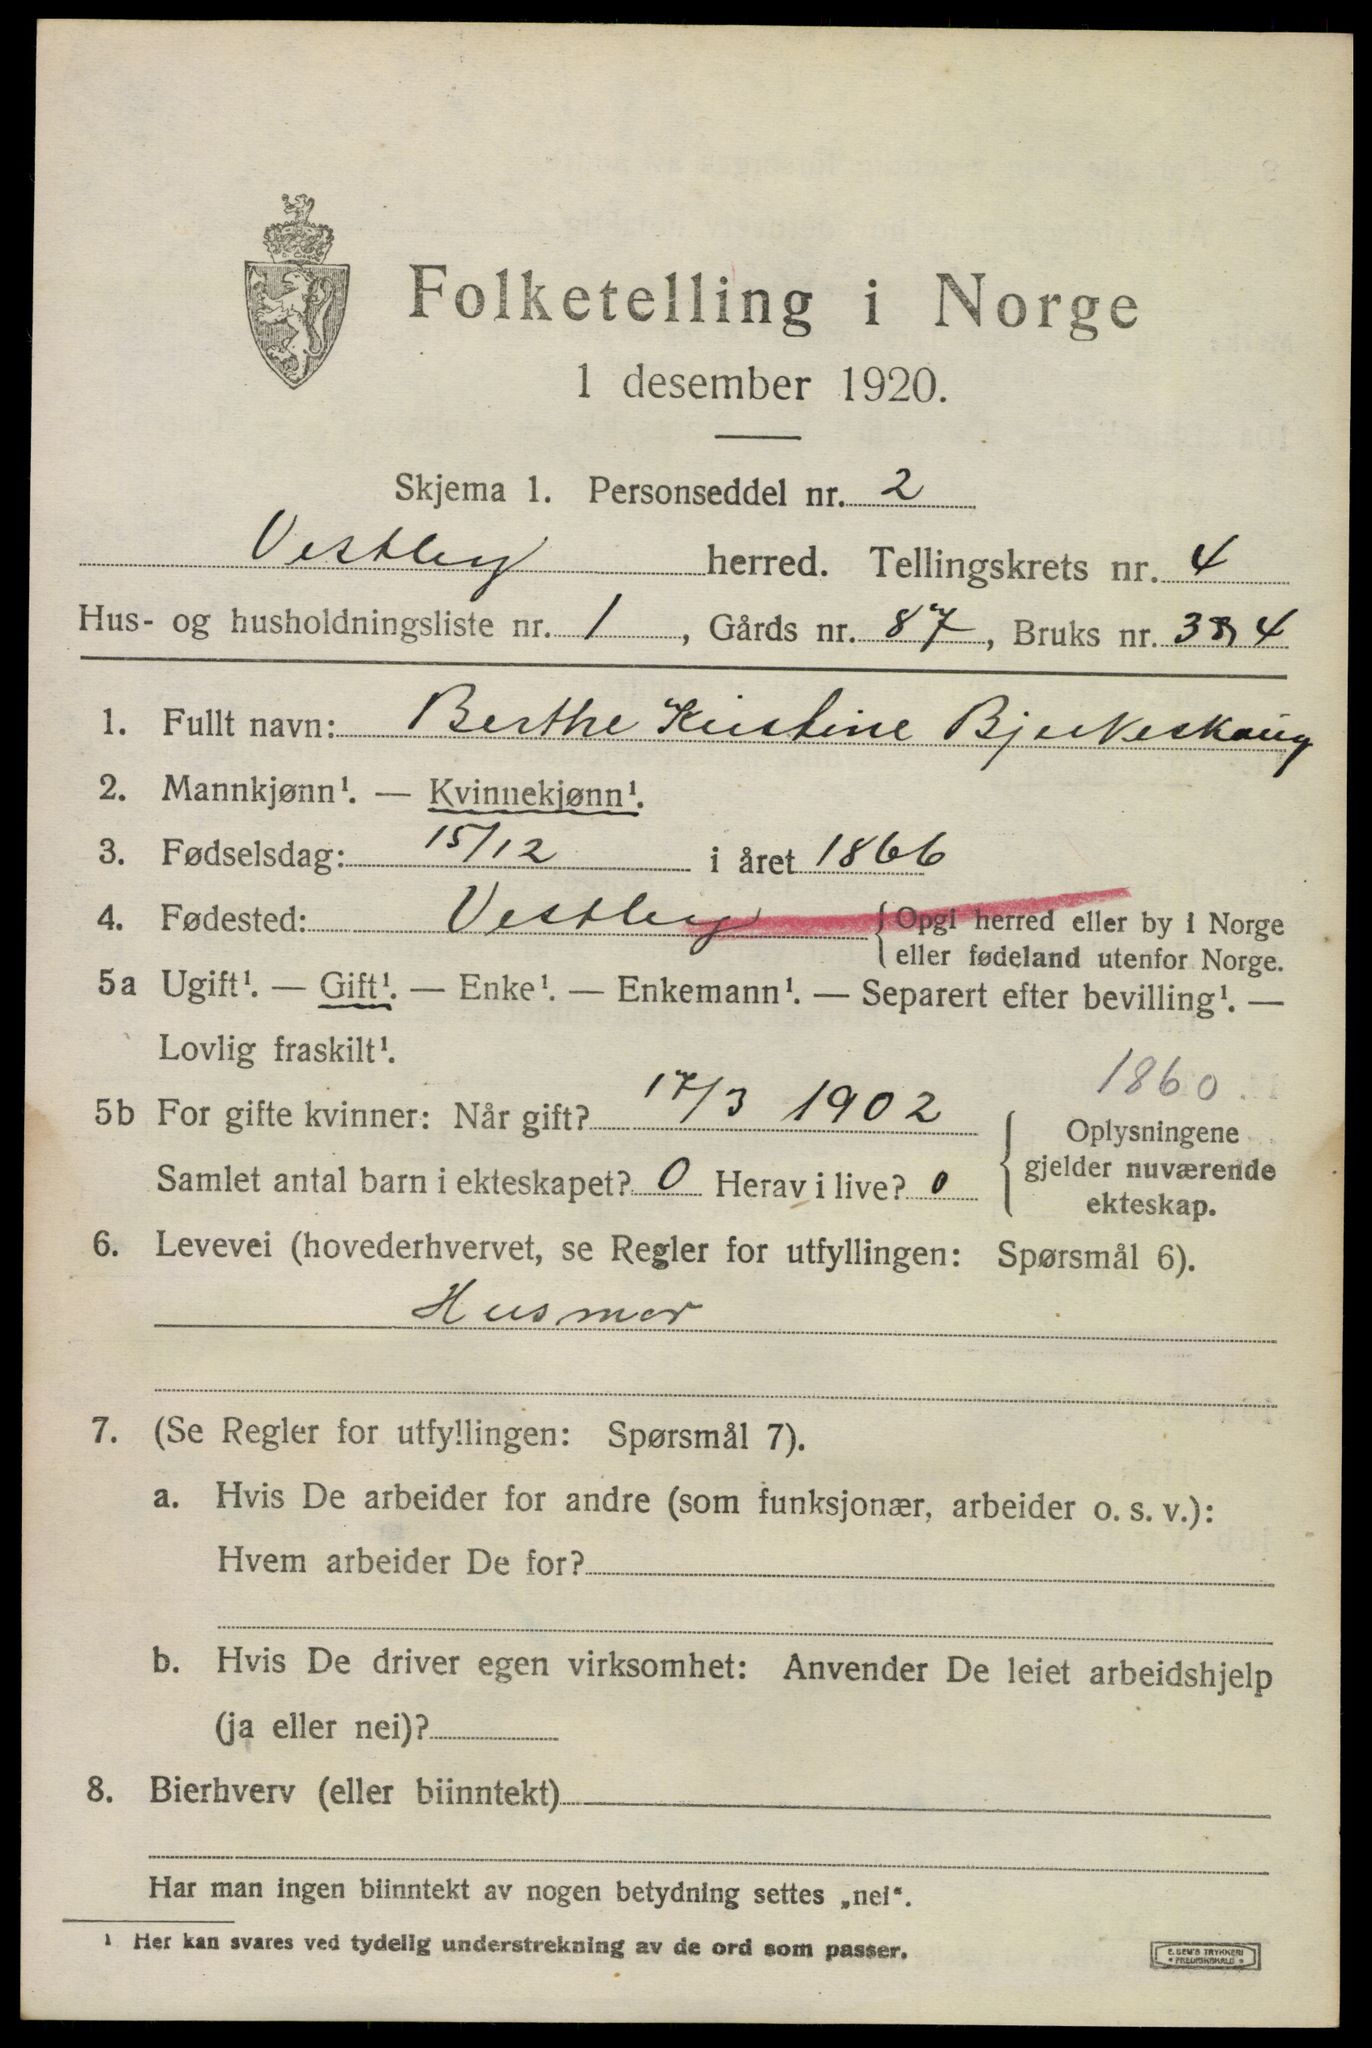 Folketelling i Norge
1 desember 1920.
Skjema 1. Personseddel nr. 2
Vestby herred. Tellingskrets nr. 4
Hus- og husholdningsliste nr. 1, Gårds nr. 87, Bruks nr. 3 & 4
1. Fullt navn: Berthe Kristine Bjerkeskaug
2. Mannkjønn¹. — Kvinnekjønn¹.
3. Fødselsdag: 15/12 i året 1866
4. Fødested: Vestby {Opgi herred eller by i Norge
eller fødeland utenfor Norge.
5a Ugift¹. — Gift¹. — Enke¹. — Enkemann¹. — Separert efter bevilling¹. —
Lovlig fraskilt¹.
1860
5b For gifte kvinner: Når gift? 17/3 1902
Samlet antal barn i ekteskapet? 0 Herav i live? 0
Oplysningene
gjelder nuværende
ekteskap.
6. Levevei (hovederhvervet, se Regler for utfyllingen: Spørsmål 6).
Husmor
7. (Se Regler for utfyllingen: Spørsmål 7).
a. Hvis De arbeider for andre (som funksjonær, arbeider o. s. v.):
Hvem arbeider De for?
b. Hvis De driver egen virksomhet: Anvender De leiet arbeidshjelp
(ja eller nei)?
8. Bierhverv (eller biinntekt)
Har man ingen biinntekt av nogen betydning settes „nei“.
¹ Her kan svares ved tydelig understrekning av de ord som passer.
E. SEM'S TRYKKERI
• FREDRIKSHALD •